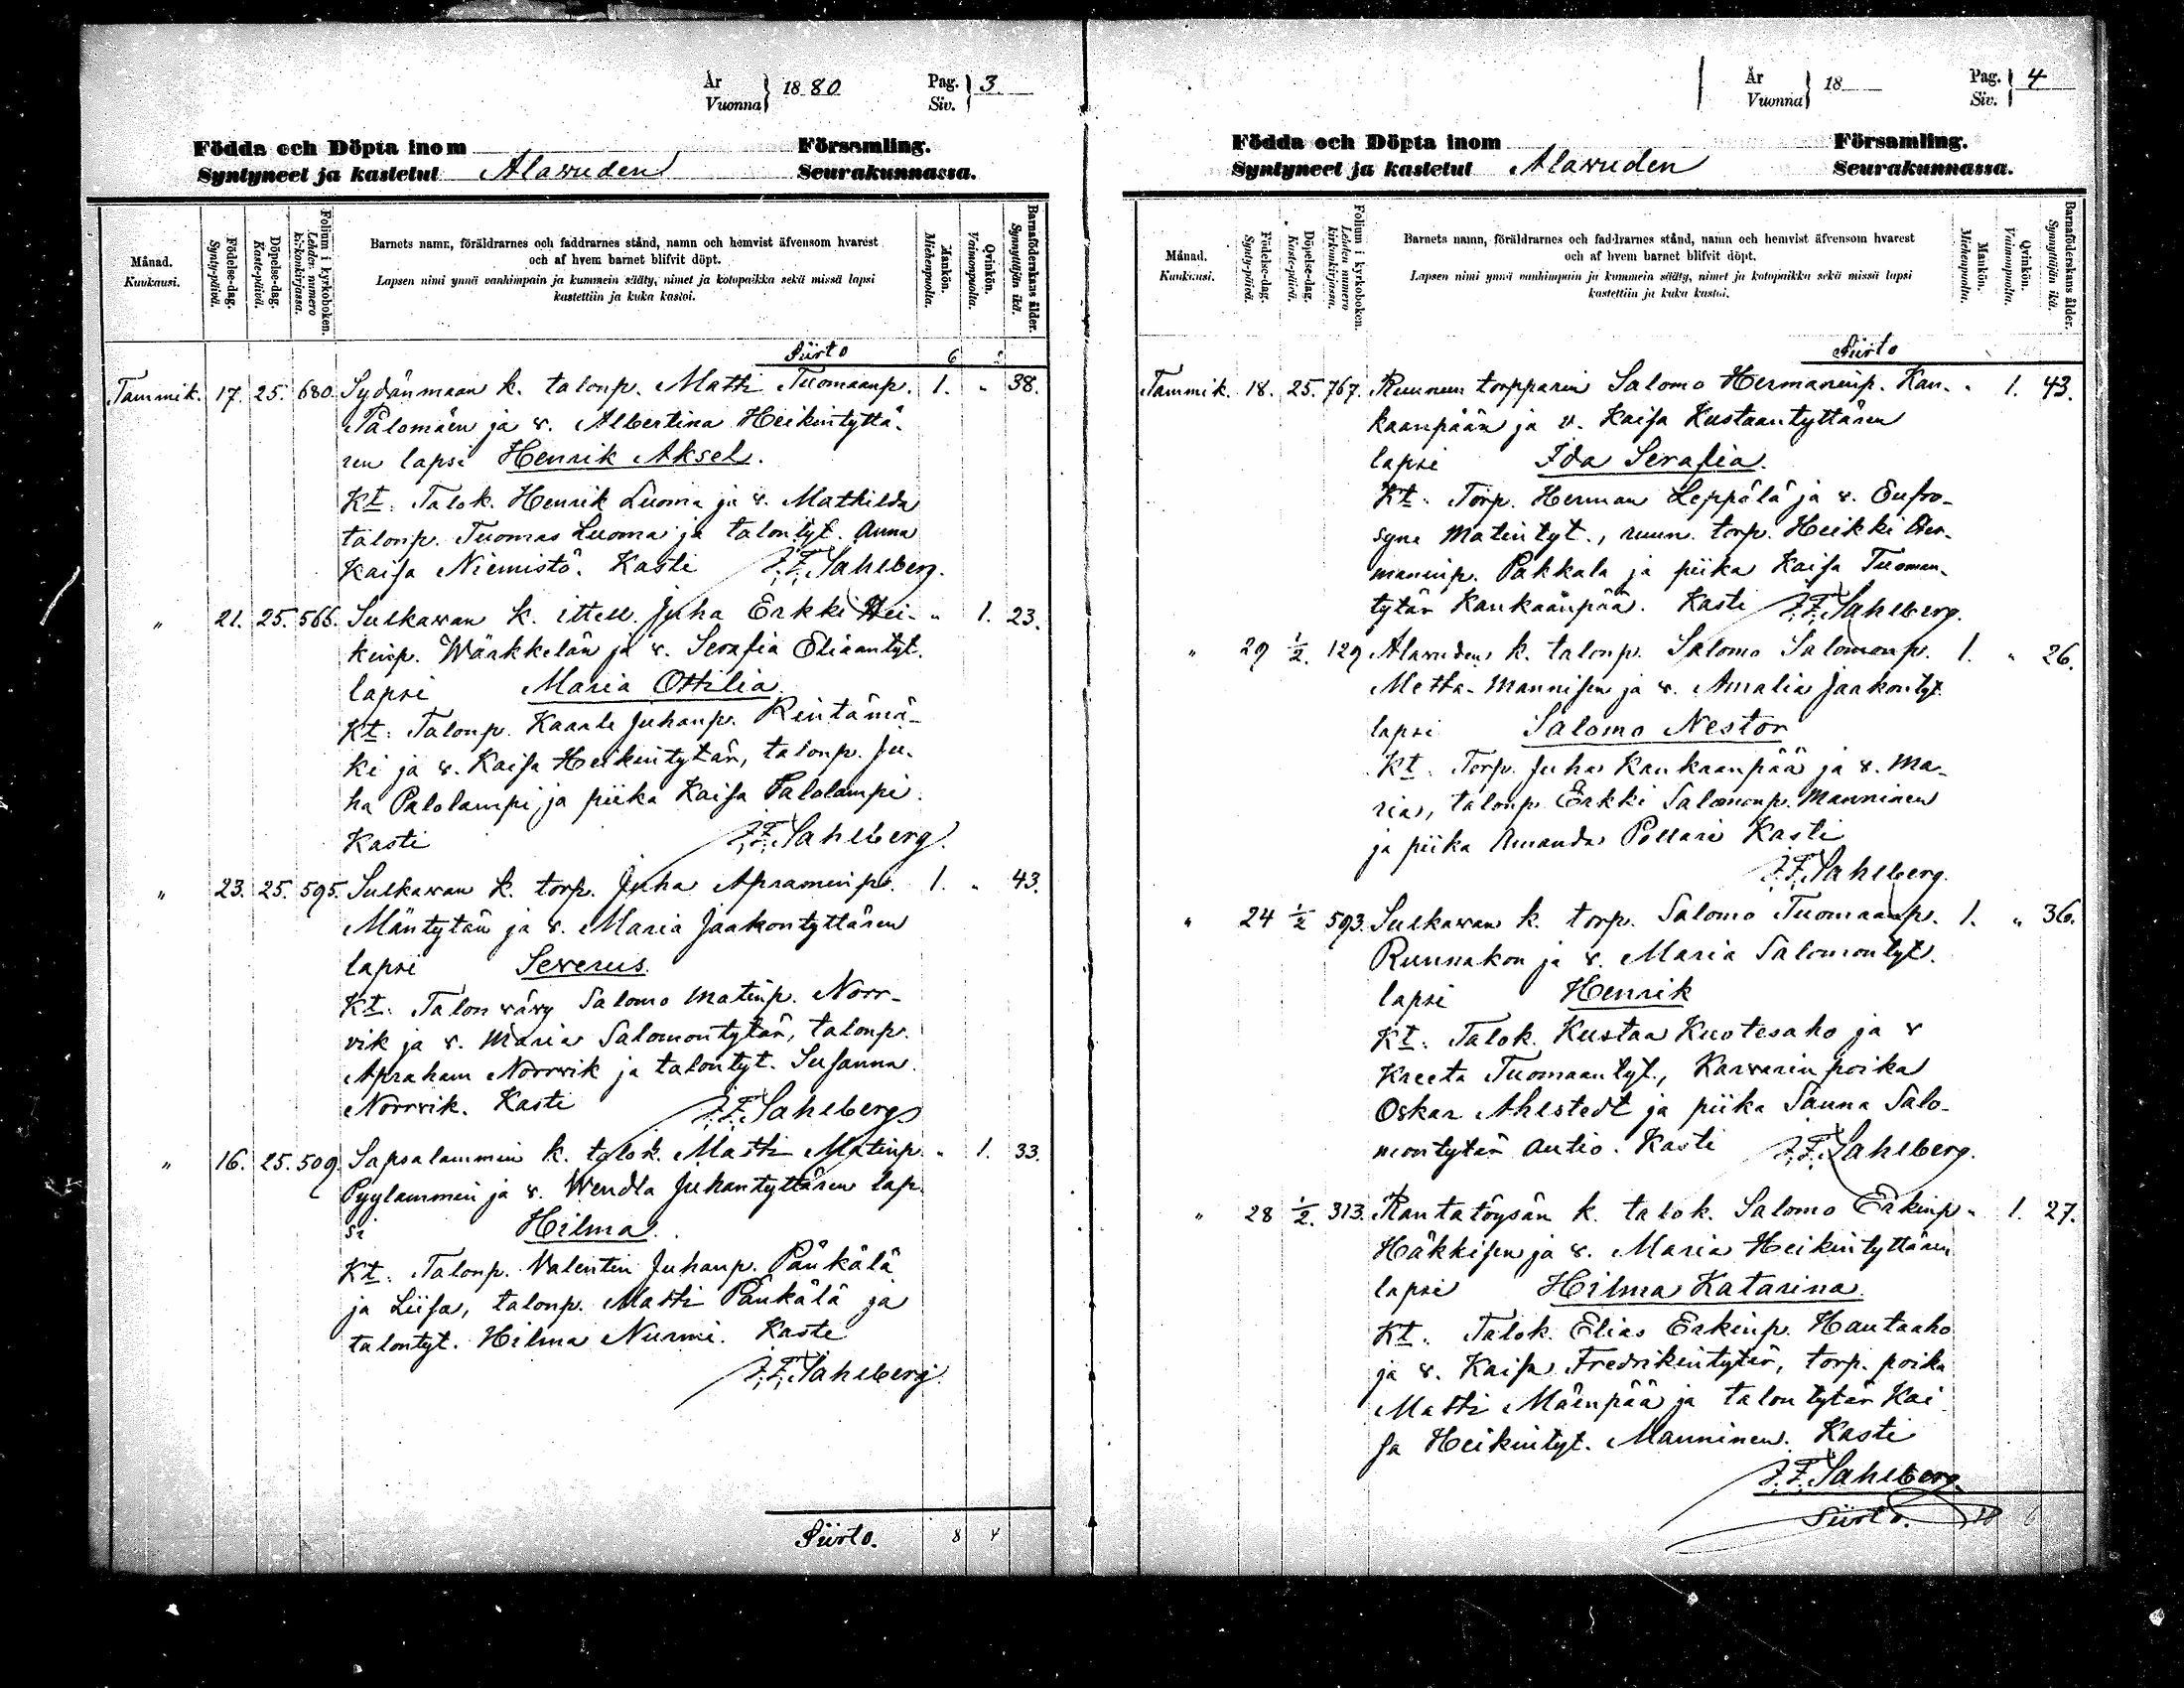 År
Vuonna } 1880 Pag.
Siv. } 3
Födda och Döpta inom Församling.
Syntyneet ja kastetut Alavuden Seurakunnassa.
Månad.
Kuukausi.
Födelse-dag.
Synty-päivä.
Döpelse-dag.
Kaste-päivä.
Folium i kyrkoboken.
Lehden numero
kirkonkirjassa.
Barnets namn, föräldrarnes och faddrarnes stånd, namn och hemvist äfvensom hvarest
och af hvem barnet blifvit döpt.
Lapsen nimi ynnä vanhimpain ja kummein sääty, nimet ja kotopaikka sekä missä lapsi
kastettiin ja kuka kastoi.
Mankön.
Miehenpuolta.
Qvinkön.
Vaimonpuolta.
Barnaföderskans ålder.
Synnyttäjän ikä.
Siirto 6 2
Tammik. 17. 25. 680. Sydänmaan k. talonp. Matti Tuomaanp. 1. " 38.
Palomäen ja v. Albertina Heikintyttä-
ren lapsi Henrik Aksel.
Kt. Talok. Henrik Luoma ja v. Mathilda
talonp. Tuomas Luoma ja talontyt. Anna
Kaisa Niemistö. Kasti J.F. Sahlberg.
" 21. 25. 566. Sulkawan k. ittell. Juha Erkki Hei- " 1. 23.
kinp. Wärkkelän ja v. Serafia Eliaantyt.
lapsi Maria Ottilia.
Kt. Talonp. Kaarle Juhanp. Rintamä-
ki ja v. Kaisa Heikintytär, talonp. Ju-
ha Palolampi ja piika Kaisa Palolampi.
Kasti J.F. Sahlberg.
" 23. 25. 595. Sulkawan k. torp. Juha Apraminp. 1. " 43.
Mäntytän ja v. Maria Jaakontyttären
lapsi Severus.
Kt. Talon vävy Salomo Matinp. Norr-
vik ja v. Maria Salomontytär, talonp.
Apraham Norrvik ja talontyt. Susanna
Norrvik. Kasti J.F. Sahlberg
" 16. 25. 509. Sapsalammin k. talok. Matti Matinp. " 1. 33.
Pyylammin ja v. Wendla Juhantyttären lap-
si Hilma.
Kt. Talonp. Valentin Juhanp. Pänkälä
ja Liisa, talonp. Matti Pänkälä ja
talontyt. Hilma Nurmi. Kasti
J.F. Sahlberg.
Siirto. 8 4
År
Vuonna } 18 Pag.
Siv. } 4
Födda och Döpta inom Församling.
Syntyneet ja kastetut Alavuden Seurakunnassa.
Månad.
Kuukausi.
Födelse-dag.
Synty-päivä.
Döpelse-dag.
Kaste-päivä.
Folium i kyrkoboken.
Lehden numero
kirkonkirjassa.
Barnets namn, föräldrarnes och faddrarnes stånd, namn och hemvist äfvensom hvarest
och af hvem barnet blifvit döpt.
Lapsen nimi ynnä vanhimpain ja kummein sääty, nimet ja kotopaikka sekä missä lapsi
kastettiin ja kuka kastoi.
Mankön.
Miehenpuolta.
Qvinkön.
Vaimonpuolta.
Barnaföderskans ålder.
Synnyttäjän ikä.
Siirto
Tammik. 18. 25. 767. Ruunun torpparin Salomo Hermaninp. Kan- " 1. 43.
kaanpään ja v. Kaisa Kustaantyttären
lapsi Ida Serafia.
Kt. Torp. Herman Leppälä ja v. Eufro-
syne Matintyt., ruun. torp. Heikki Her-
maninp. Pakkala ja piika Kaisa Tuoman-
tytär Kankaanpää. Kasti J.F. Sahlberg.
" 29 1/2. 129 Alavuden k. talonp. Salomo Salomonp. 1. " 26.
Metsä-Mannisen ja v. Amalia Jaakontyt.
lapsi Salomo Nestor
Kt. Torp. Juha Kankaanpää ja v. Ma-
ria, talonp. Erkki Salomonp. Manninen
ja piika Amanda Pollari Kasti
J.F. Sahlberg.
" 24 1/2 593. Sulkawan k. torp. Salomo Tuomaanp. 1. " 36.
Runnakon ja v. Maria Salomontyt.
lapsi Henrik
Kt. Talok. Kustaa Kuotesaho ja v
Kreeta Tuomaantyt., Karvarin poika
Oskar Ahlstedt ja piika Sanna Salo-
montytär Autio. Kasti J.F. Sahlberg.
" 28 1/2. 313. Rantatöysän k. talok. Salomo Erkinp. " 1. 27.
Häkkisen ja v. Maria Heikintyttären
lapsi Hilma Katarina.
Kt. Talok. Elias Erkinp. Hautaaho
ja v. Kaisa Fredrikintytär, torp. poika
Matti Mäenpää ja talon tytär Kai-
sa Heikintyt. Manninen. Kasti
J.F. Sahlberg.
Siirto. 10 6